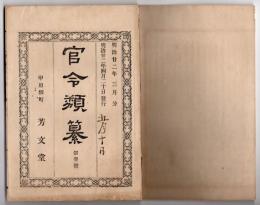 明治廿二年三月分
明治廿二年四月二十日發行
官令類纂
甲府柳町
芳文堂